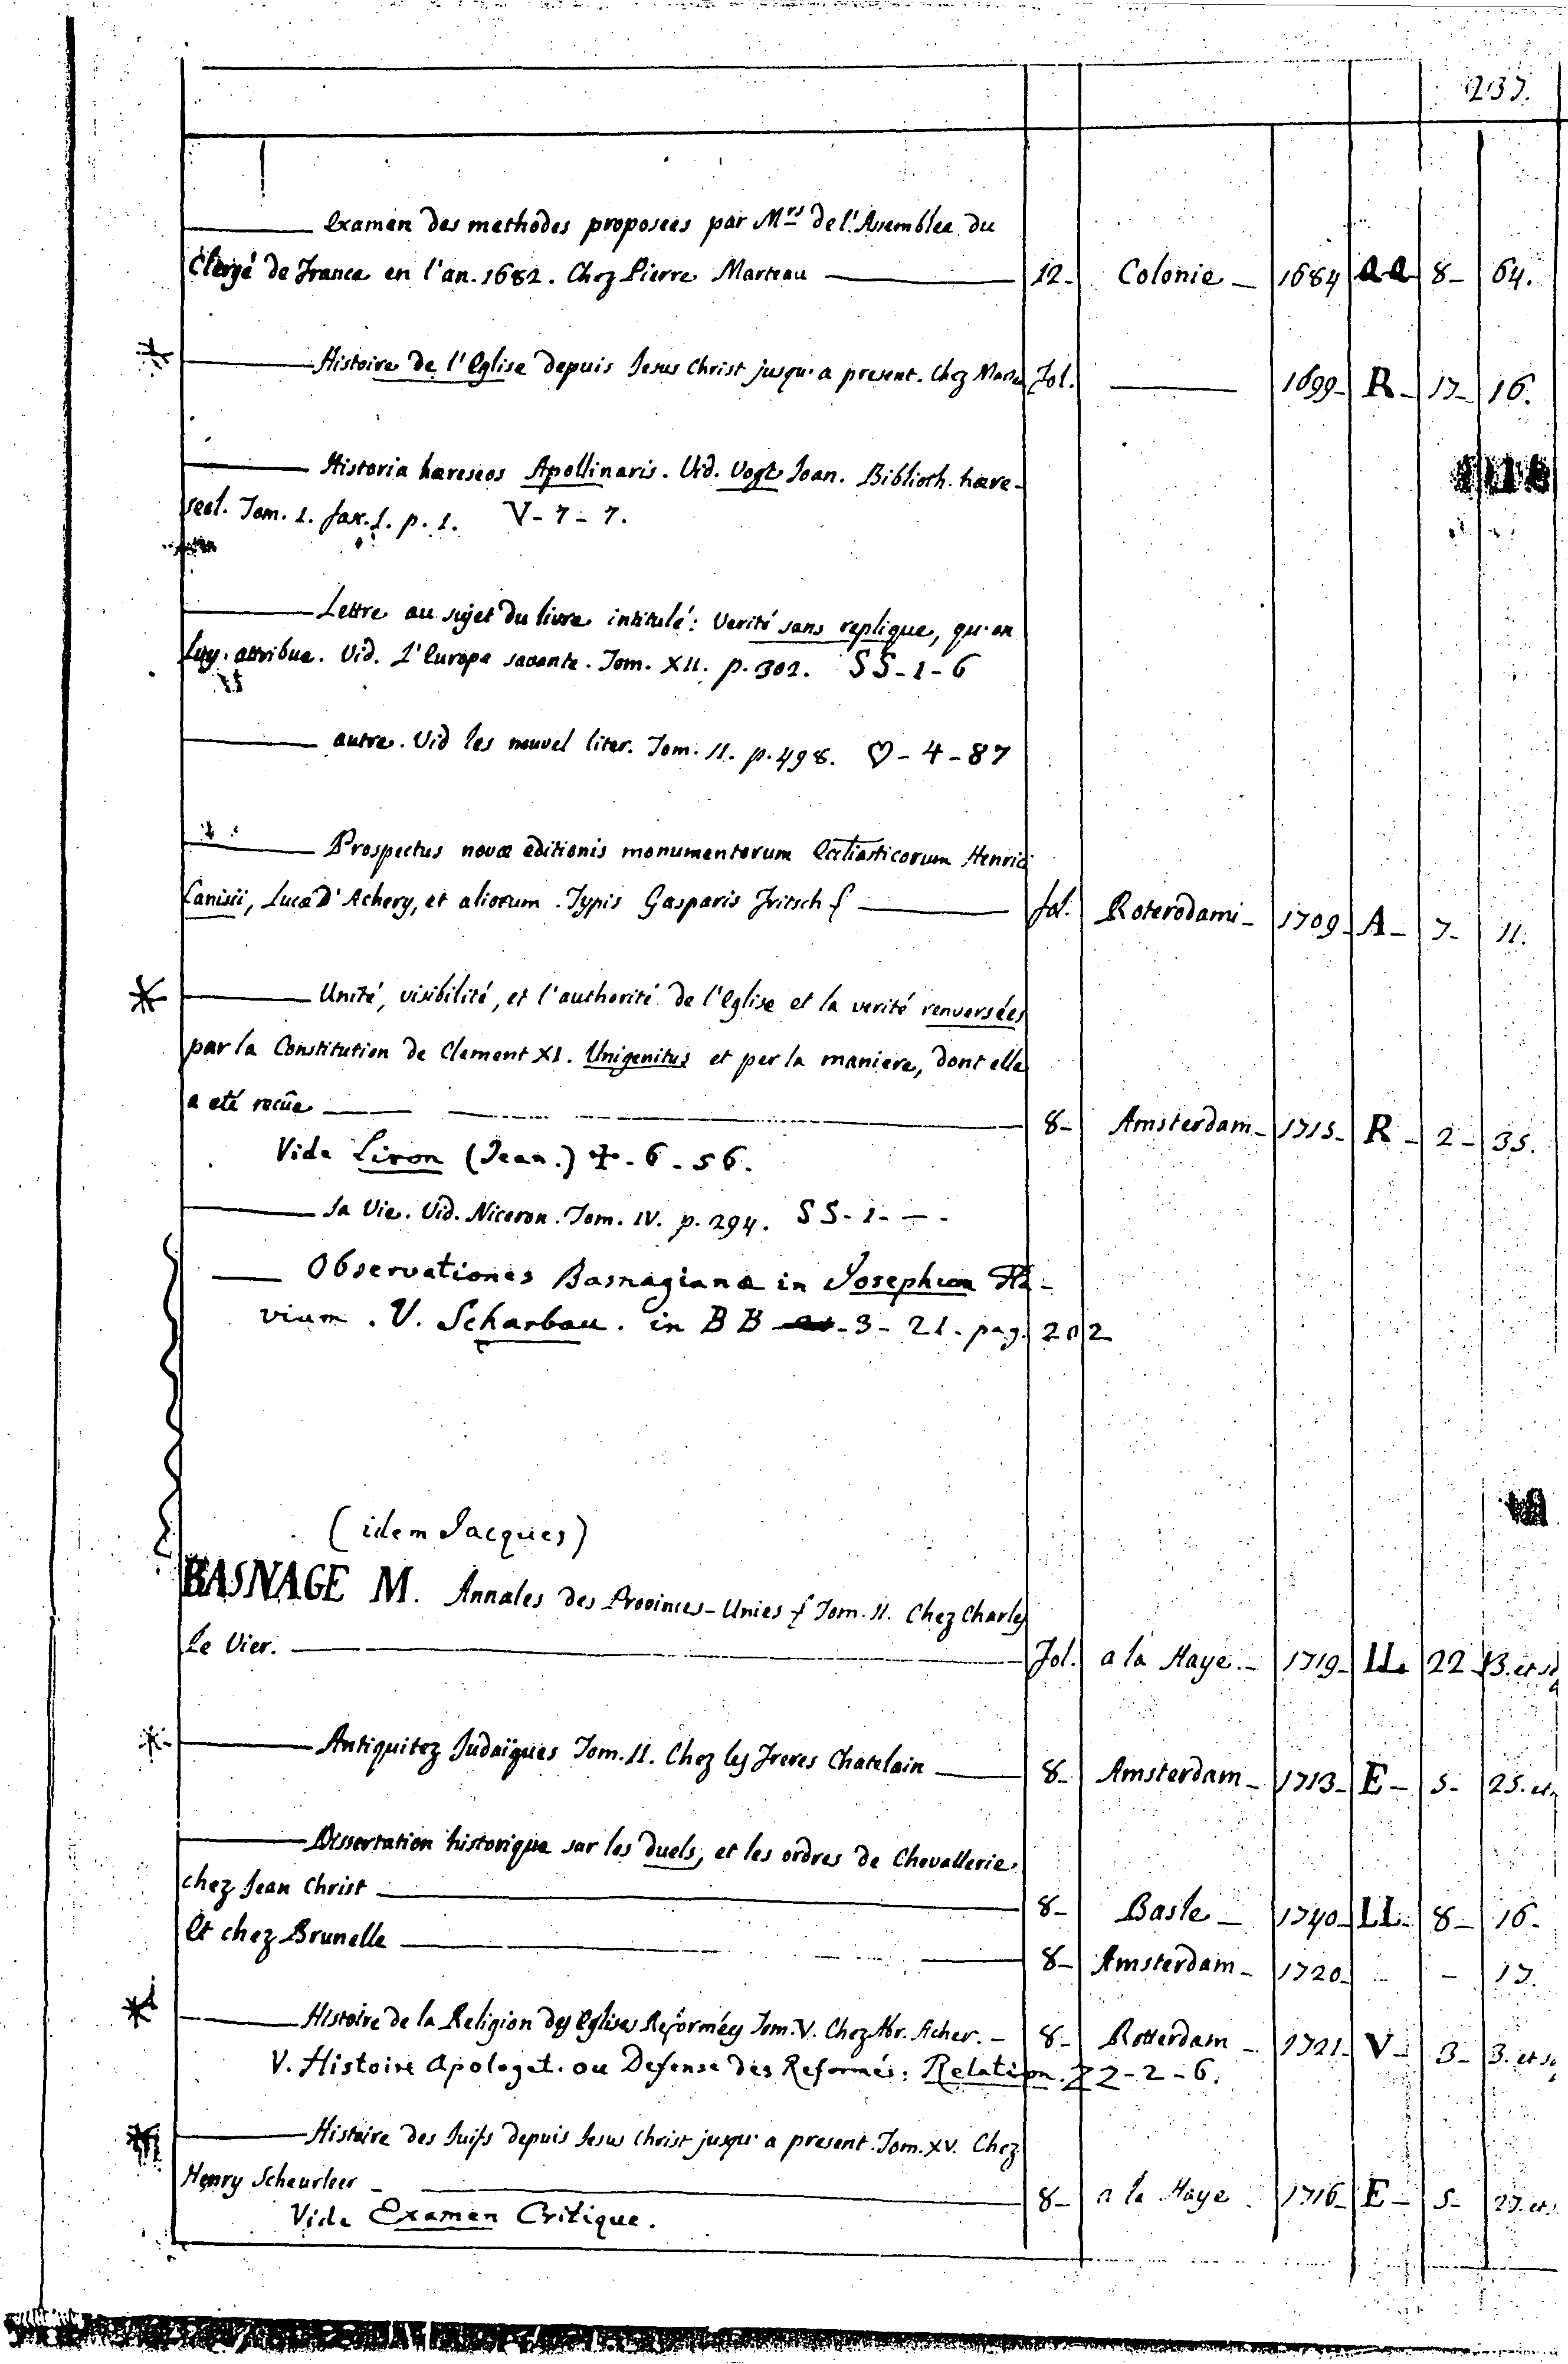 237.
——— Examen des methodes proposées par Mrs de l'Assemblée du
Clergé de France en l'an. 1682. Chez Pierre Marteau ——— 12- Colonie - 1684 aa 8- 64.
* ——— Histoire de l'Eglise depuis Jesus Christ jusqu'a present. Chez Fol. ——— 1699- R- 17- 16.
——— Historia hæreseos Apollinaris. Vid. Vogt Joan. Biblioth. hære-
seol. Tom. 1. fax. 1. p. 1. V-7-7.
——— Lettre au sujet du livre intitulé: Verité sans replique, qu'on
luy attribue. Vid. L'Europe savante. Tom. XII. p. 302. SS-1-6
——— autre. Vid les nouvel liter. Tom. 11. p. 498. ♡-4-87
——— Prospectus novæ editionis monumentorum Henrici
Canisii, Lucæ D'Achery, et aliorum. Typis Gasparis Fritsch ——— fol. Roterodami- 1709- A- 7- 11.
* ——— Unité, visibilité, et l'authorité de l'Eglise et la verité renversées
par la Constitution de Clement XI. Unigenitus et per la maniere, dont elle
a eté recûe ——— 8- Amsterdam- 1715- R- 2- 35.
Vide Liron (Jean.) ✢-6-56.
——— sa Vie. Vid. Niceron. Tom. IV. p. 294. SS-1- — -
——— Observationes Basnagianæ in Josephum Fla-
vium. V. Scharbau. in BB -3-21. pag. 202
(idem Jacques)
BASNAGE M. Annales des Provinces-Unies Tom. II. Chez Charles
Le Vier. ——— Fol. a la Haye.- 1719- LL. 22- 13. et
* ——— Antiquitez Judaïques Tom. II. Chez les Freres Chatelain ——— 8- Amsterdam- 1713- E- 5- 25. et
——— Dissertation historique sur les duels, et les ordres de Chevallerie.
chez Jean Christ ——— 8- Basle - 1740- LL- 8- 16-
Et chez Brunelle ——— 8- Amsterdam- 1720- - 17.
* ——— Histoire de la Religion des Eglises Reformées Tom. V. Chez Abr. Acher. - 8- Rotterdam - 1721- V- 3- 3. et
V. Histoire Apologet. ou Defense des Reformés: Relation. ZZ-2-6.
* ——— Histoire des Juifs depuis Jesus Christ jusqu'a present. Tom. XV. Chez
Henry Scheurleer - ——— 8- a la Haye - 1716- E- 5- 27. et
Vide Examen Critique.